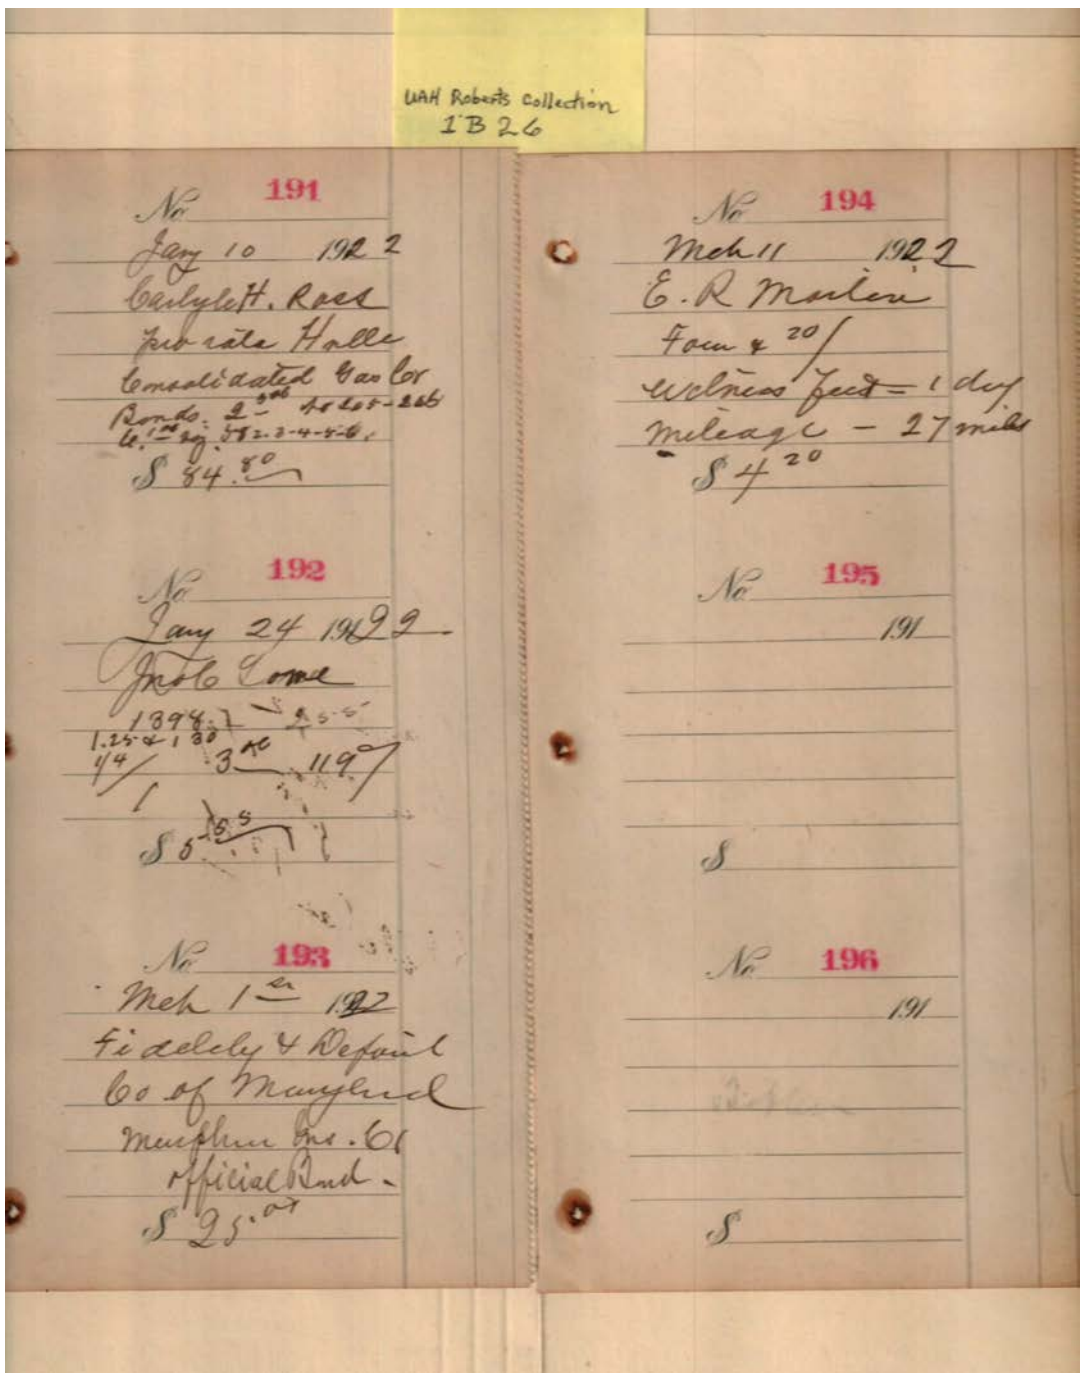 UAH Roberts Collection
1B26
No 191
Jany 10 1922
Carlyle H. Ross
pro rata
Consolidated Gas Cos
Bonds.
$ 84.80
No 192
Jany 24 1922
Jno C
1398
1.25 & 1 30
1/4
3 119
1
$ 5.55
No 193
Mch 1st 1922
Fidelity & Deposit
Co of Maryland
Ins. Co
official Bond -
$ 25.00
No 194
Mch 11 1922
E. R
Four & 20/
witness fees = 1 day
mileage - 27 miles
$ 4 20
No 195
191
$
No 196
191
$